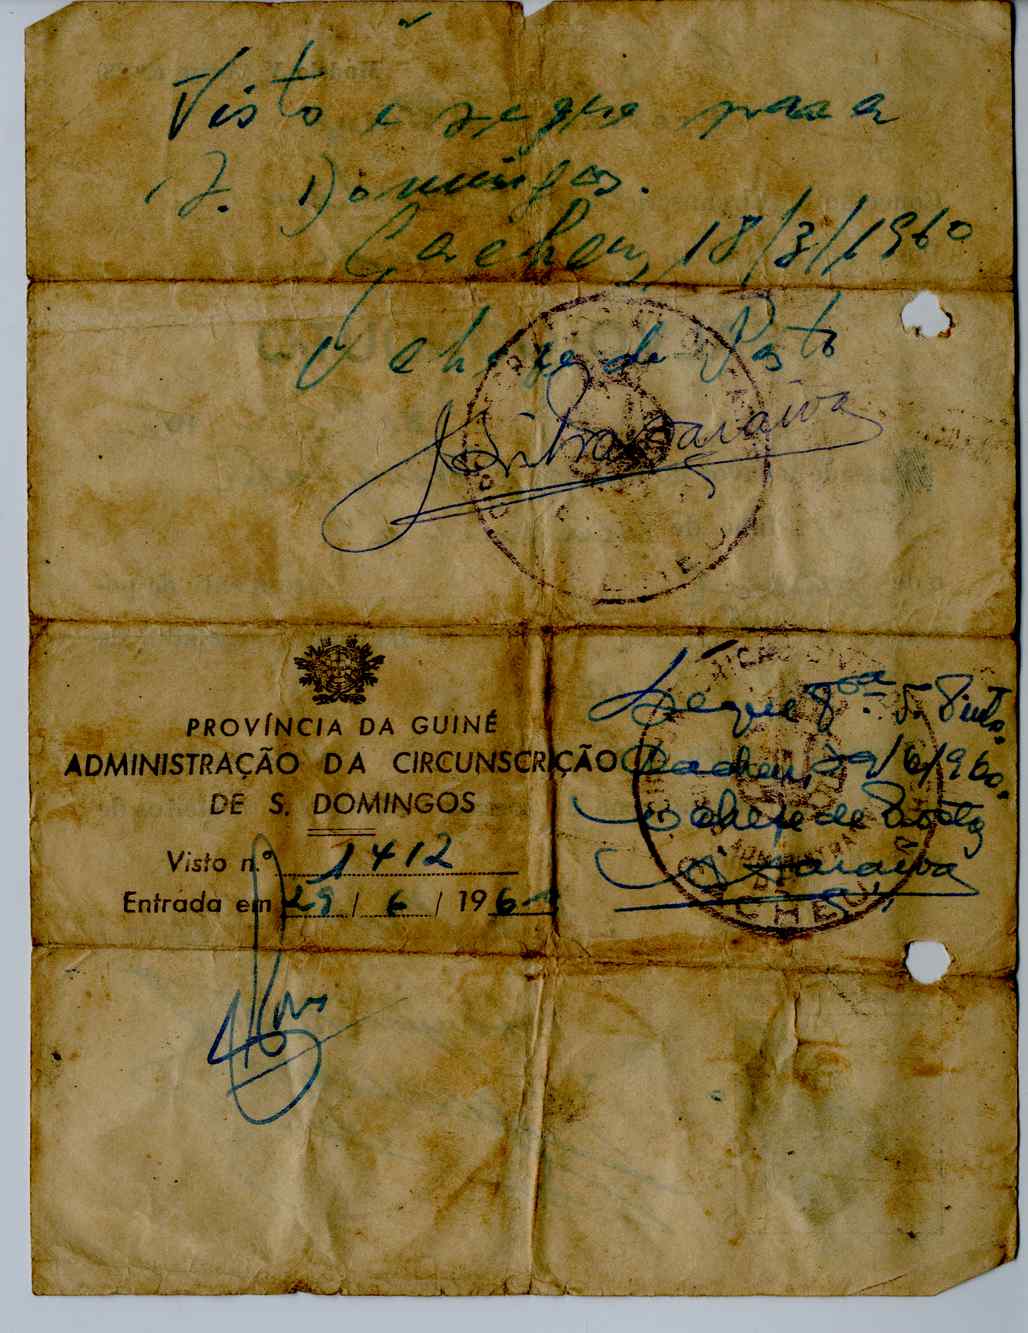 Visto e segue para
S. Domingos.
Cacheu, 18/3/1960
O chefe de Posto
Saraiva
PROVÍNCIA DA GUINÉ
ADMINISTRAÇÃO DA CIRCUNSCRIÇÃO
DE S. DOMINGOS
Visto n.º 1412
Entrada em 29 / 6 / 1960
Segue
Cacheu, 29/6/960.
O chefe de Posto
Saraiva
ADMINISTRA
DE
CACHEU